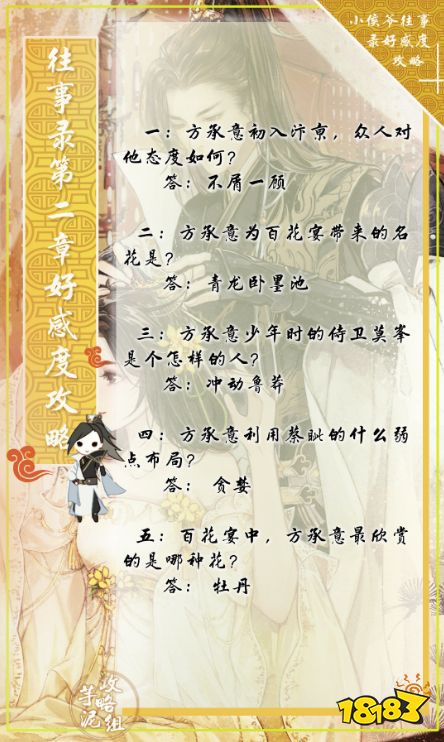 小侯爷往事
录好感度
攻略
往事录第二章好感度攻略
一：方承意初入汴京，众人对
他态度如何？
答：不屑一顾
二：方承意为百花宴带来的名
花是？
答：青龙卧墨池
三：方承意少年时的侍卫莫峯
是个怎样的人？
答：冲动鲁莽
四：方承意利用蔡眦的什么弱
点布局？
答：贪婪
五：百花宴中，方承意最欣赏
的是哪种花？
答：牡丹
芋泥
攻略组
18183